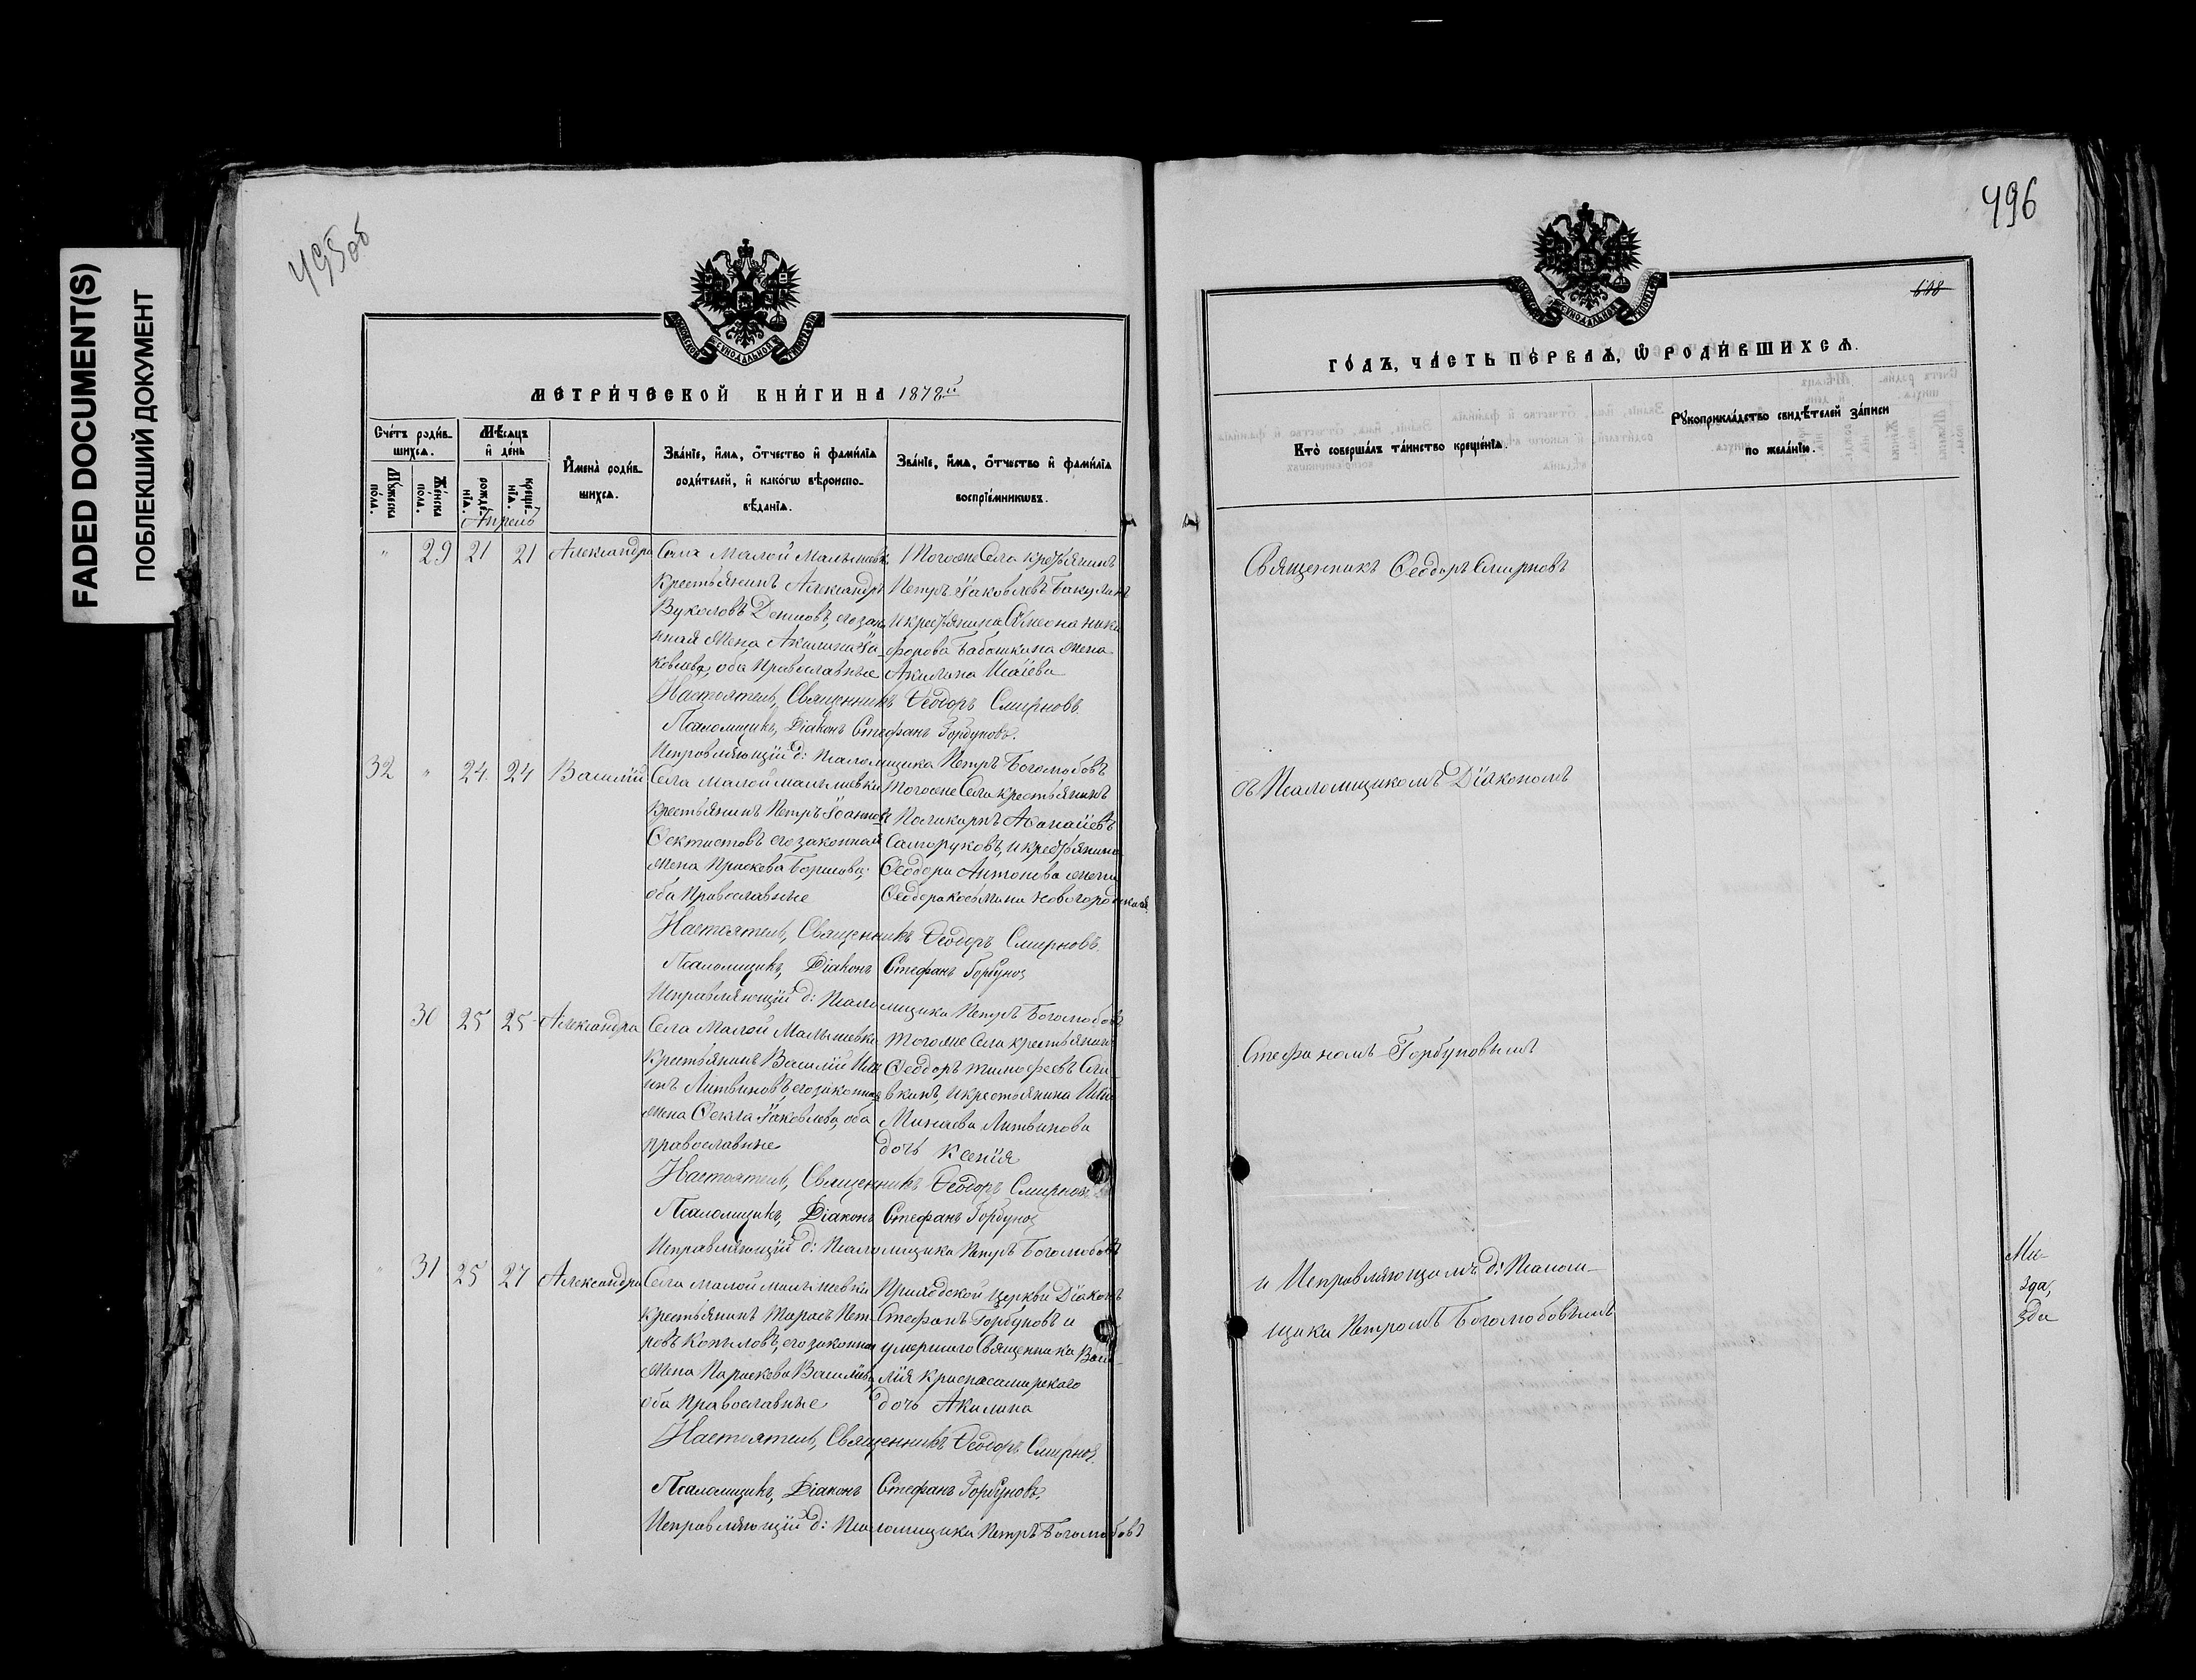 FADED DOCUMENT(S)
ПОБЛЕКШИЙ ДОКУМЕНТ
495об
МОСКОВСКОЙ СѴНОДАЛЬНОЙ ТИПОГРАФІИ
МЕТРИ́ЧЕСКОЙ КНИ́ГИ НА 1878й
Сче́тъ роди́в-
шихсѧ.
Мѣ́сѧцъ
и҆ де́нь
И҆мена̀ роди́в-
шихсѧ.
Зва́нїе, и҆́мѧ, ѻ҆́тчество и҆ фами́лїѧ
роди́телей, и҆ како́гѡ вѣ́роиспо-
вѣ́данїѧ.
Зва́нїе, и҆́мѧ, ѻ҆́тчество и҆ фами́лїѧ
воспрїе́мникѡвъ.
Мꙋ́жеска
по́ла.
Же́нска
по́ла.
рожде́-
нїѧ.
креще́-
нїѧ.
Апрель
" 29 21 21 Александра
Села Малой Малышевки
Крестьянинъ Александръ
Вуколовъ Денисовъ, его закон
ная жена Акилина Іа-
ковлева, оба Православные
Тогоже Села крестьянинъ
Петръ Іаковлевъ Бакулинъ
и крестьянина Сѵмеона Ники
форова Бабошкина жена
Акилина Исаіева
Настоятель, Священникъ Ѳеодоръ Смирновъ.
Псаломщикъ, Діаконъ Стефанъ Горбуновъ.
Исправляющій д: Псаломщика Петръ Боголюбовъ
32 " 24 24 Василій
Села Малой малышевки
Крестьянинъ Петръ Іоаннов
Ѳектистовъ его законная
жена Праскева Борисова;
оба Православные
Тогоже Села крестьянинъ
Поликарпъ Аѳанасіевъ
Саморуковъ, и крестьянина
Ѳеодора Антонова жена
Ѳеодора Косьмина Новогородцкая
Настоятель, Священникъ Ѳеодоръ Смирновъ.
Псаломщикъ, Діаконъ Стефанъ Горбунов
Исправляющій д: Псаломщика Петръ Боголюбовъ
30 25 25 Александра
Села Малой Малышевки
Крестьянинъ Василій
Литвиновъ, его законная
жена Ѳекла Іаковлева, оба
православные
Тогоже Села крестьянинъ
Ѳеодоръ Тимофеевъ
вкинъ, и крестьянина
Минаева Литвинова
дочь Ксенія
Настоятель, Священникъ Ѳеодоръ Смирнов
Псаломщикъ, Діаконъ Стефанъ Горбунов
Исправляющій д: Псаломщика Петръ Боголюбовъ
" 31 25 27 Александра
Села малой малышевки
крестьянинъ Тарасъ Пет-
ровъ Копыловъ, его законная
жена Параскева Васильева,
оба Православные
Приходской Церкви Діаконъ
Стефанъ Горбуновъ и
умершаго Священника Васи-
лія Красносамарскаго
дочь Акилина
Настоятель, Священникъ Ѳеодоръ Смирнов.
Псаломщикъ, Діаконъ Стефанъ Горбуновъ.
Исправляющій д: Псаломщика Петръ Боголюбовъ
496
МОСКОВСКОЙ СѴНОДАЛЬНОЙ ТИПОГРАФІИ
ГО́ДЪ, ЧА́СТЬ ПЕ́РВАѦ, Ѡ҆ РОДИ́ВШИХСѦ.
Кто̀ соверша́лъ та́инство креще́нїѧ.
Рꙋкоприкла́дство свидѣ́телей за́писи
по жела́нїю.
Священникъ Ѳеодоръ Смирновъ
съ Псаломщикомъ Діакономъ
Стефаномъ Горбуновымъ
и Исправляющимъ д: Псалом-
щика Петромъ Боголюбовымъ